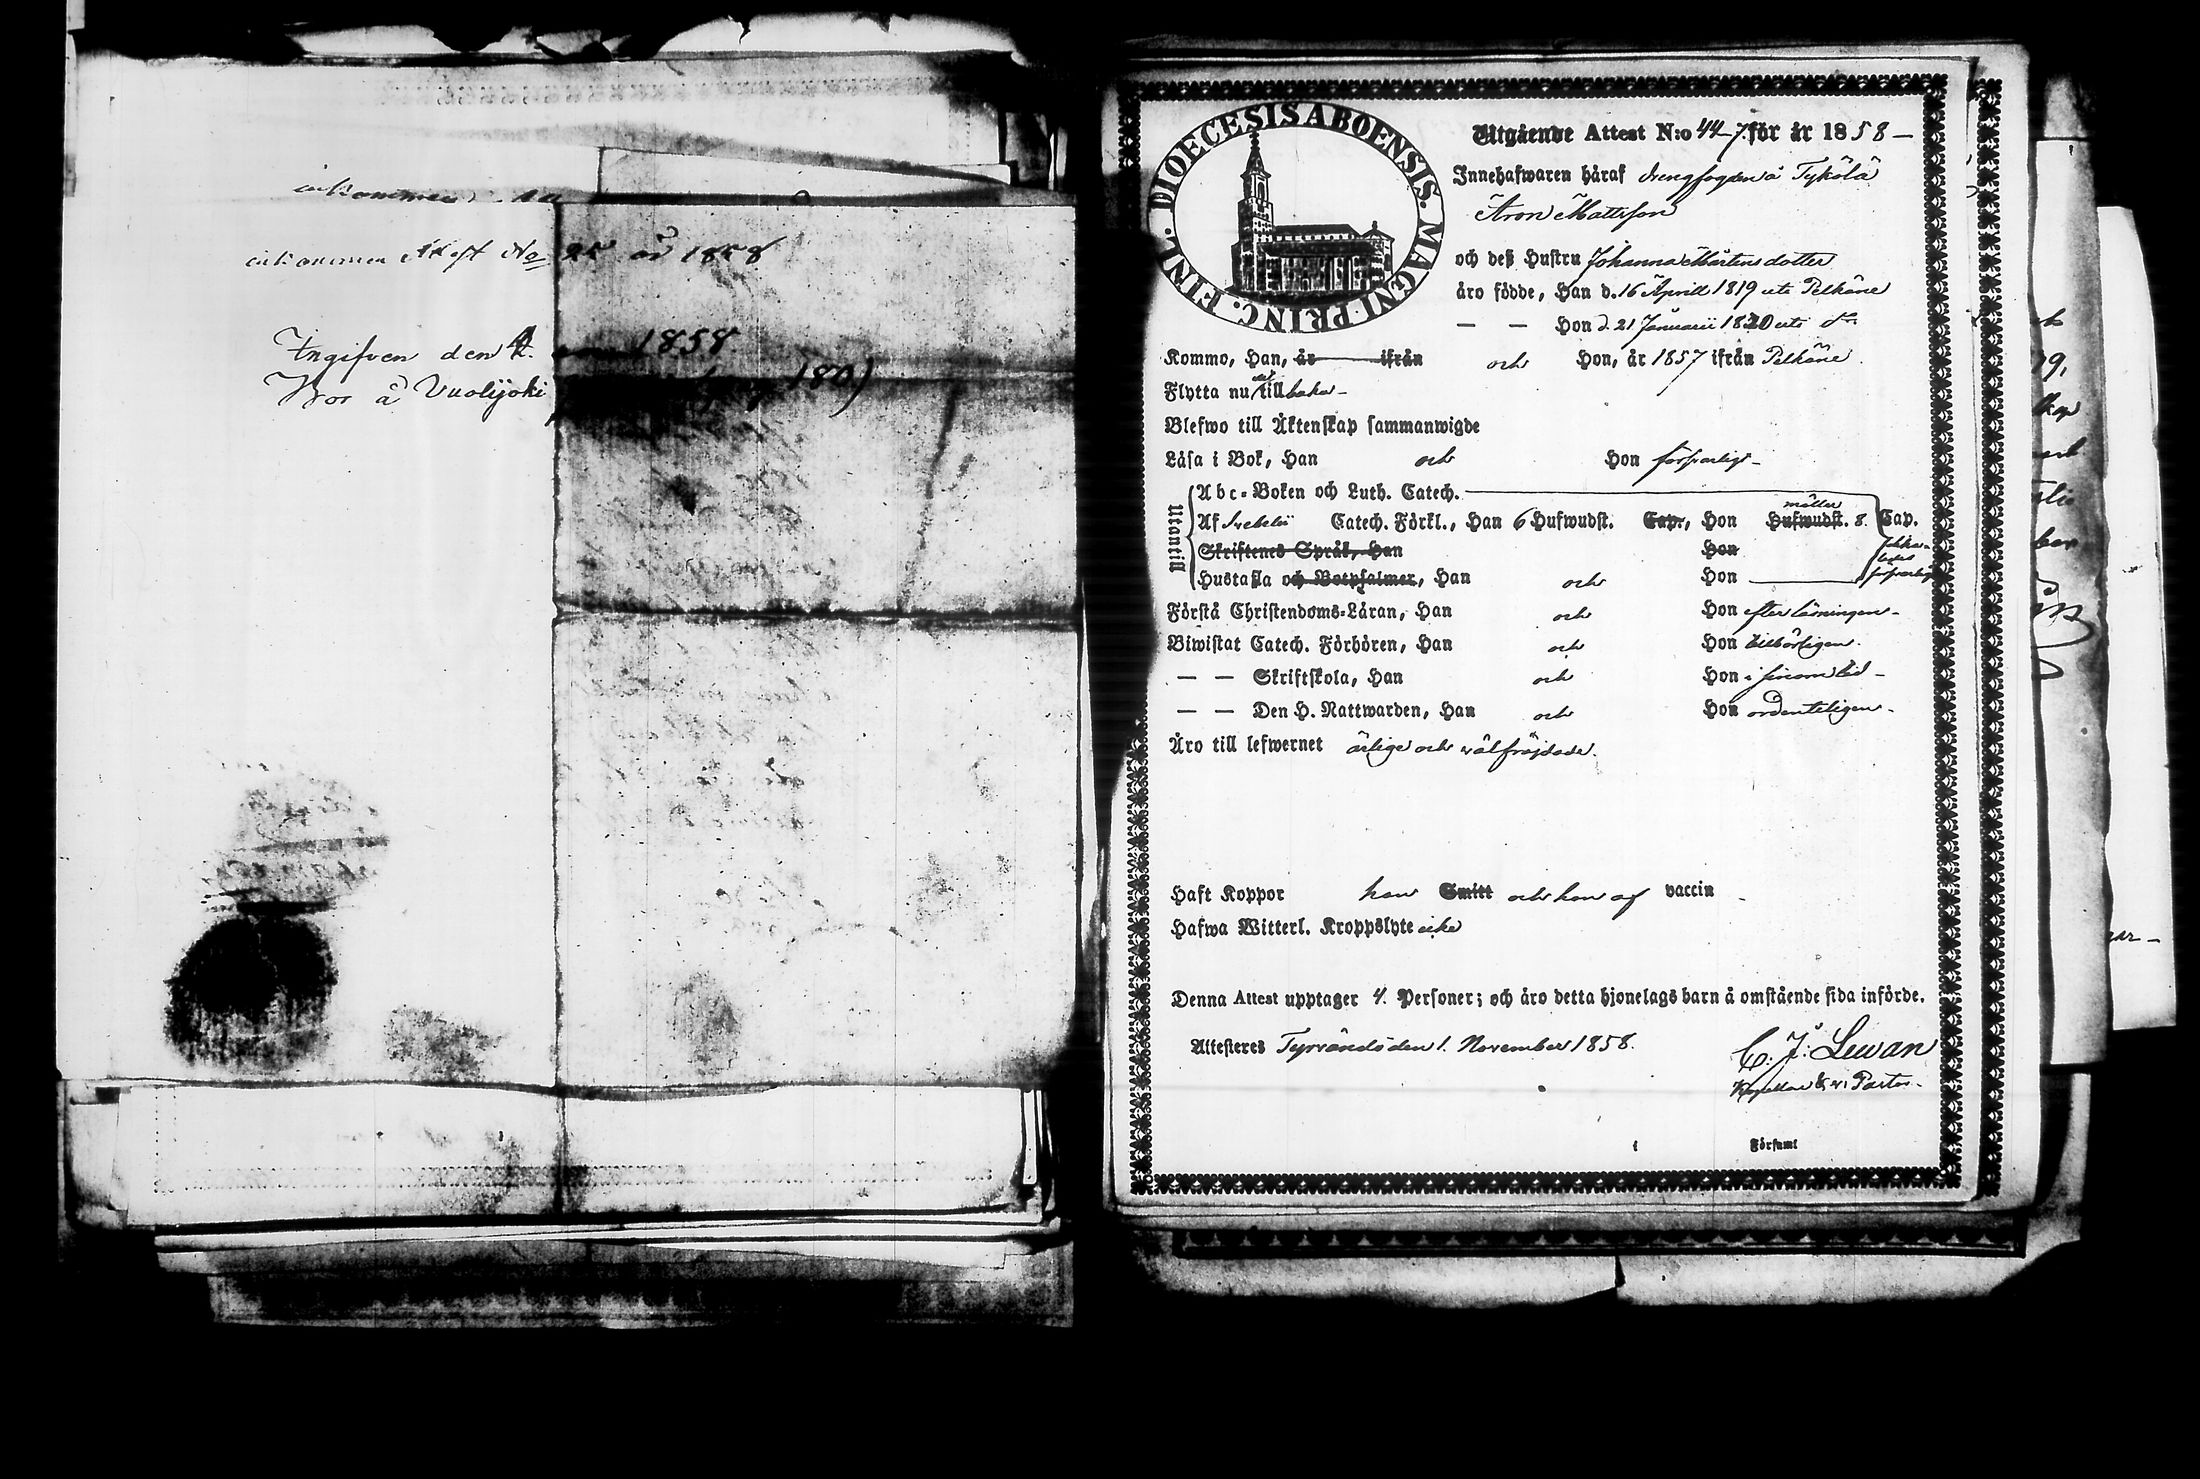 inkommen
inkommen Attest No 95 år 1858
Ingifven den 4. 1858
Bor å Vuolijoki 180)
FINL. DIOECESIS ABOENSIS. MAGNI PRINC.
Utgående Attest N:o 44 för år 1858 —
Innehafwaren håraf drengfogden å Tykölä
Aron Mattsson
och deß Hustru Johanna Mårtensdotter
åro födde, Han d. 16 April 1819 uti Pelkäne
— — Hon d. 21 Januarii 1820 uti d:o
Kommo, Han, år ifrån och Hon, år 1857 ifrån Pelkäne
Flytta nu tillbaka —
Blefwo till Åktenskap sammanwigde
Låsa i Bok, Han och Hon försvarligt —
Utantill
Abc-Boken och Luth. Catech.
Af Svebelii Catech. Förkl., Han 6 Hufwudst. Cap., Hon Hufwudst. 8. Cap.
Skriftenes Språk, Han Hon
Hustafla och Botpsalmer, Han och Hon
Förstå Christendoms-Låran, Han och Hon efter läsningen —
Biwistat Catech. Förhören, Han och Hon tillbörligen.
— — Skriftskola, Han och Hon i sinom tid —
— — Den H. Nattwarden, Han och Hon ordenteligen —
Åro till lefwernet ärlige och välfräjdade.
Haft Koppor han Smitt och hon af vaccin
Hafwa Witterl. Kroppslyte icke
Denna Attest upptager 4. Personer; och åro detta hjonelags barn å omstående sida införde.
Attesteres Tyrväändö den 1. November 1858.
C. J. Lewan
Kapellan & v. Pastor.
i Församl